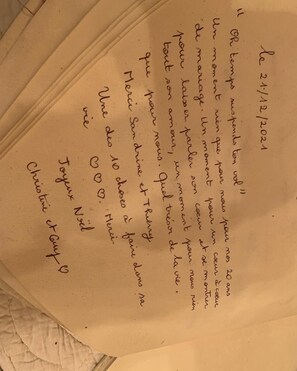 le 21/12/2021
"Oh temps suspends ton vol"
Un moment rien que pour nous pour nos 20 ans
de mariage. Un moment pour un cœur à cœur
pour laisser parler son cœur et se montrer
tout son amour, un moment pour nous rien
que pour nous. Quel trésor de la vie.
Merci Sandrine et Thierry
Une des 10 choses à faire dans sa
vie ♡♡♡. Merci
Joyeux Noël
Christine et Guy ♡